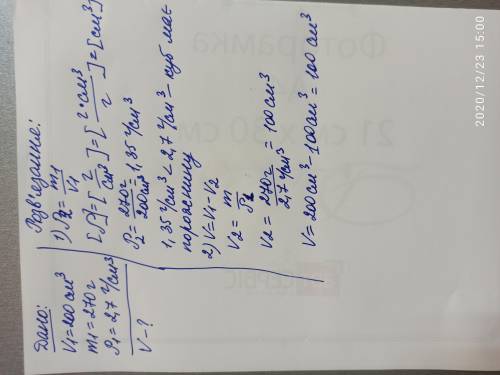 Дано:
V₁=200см³
m₁=270г
ρ₁=2,7 г/см³
V-?
Розв'язання:
1) ρ₂=m₁/V₁
[ρ]=[г/см³]=[г·см³/г]=[см³]
ρ₂=270г/200см³=1,35 г/см³
1,35 г/см³ < 2,7 г/см³ - куб має
порожнину
2) V=V₁-V₂
V₂=m/ρ₁
V₂=270г/2,7 г/см³=100см³
V=200см³-100см³=100см³
Фоторамка
21 см х 30 см
2020/12/23 15:00